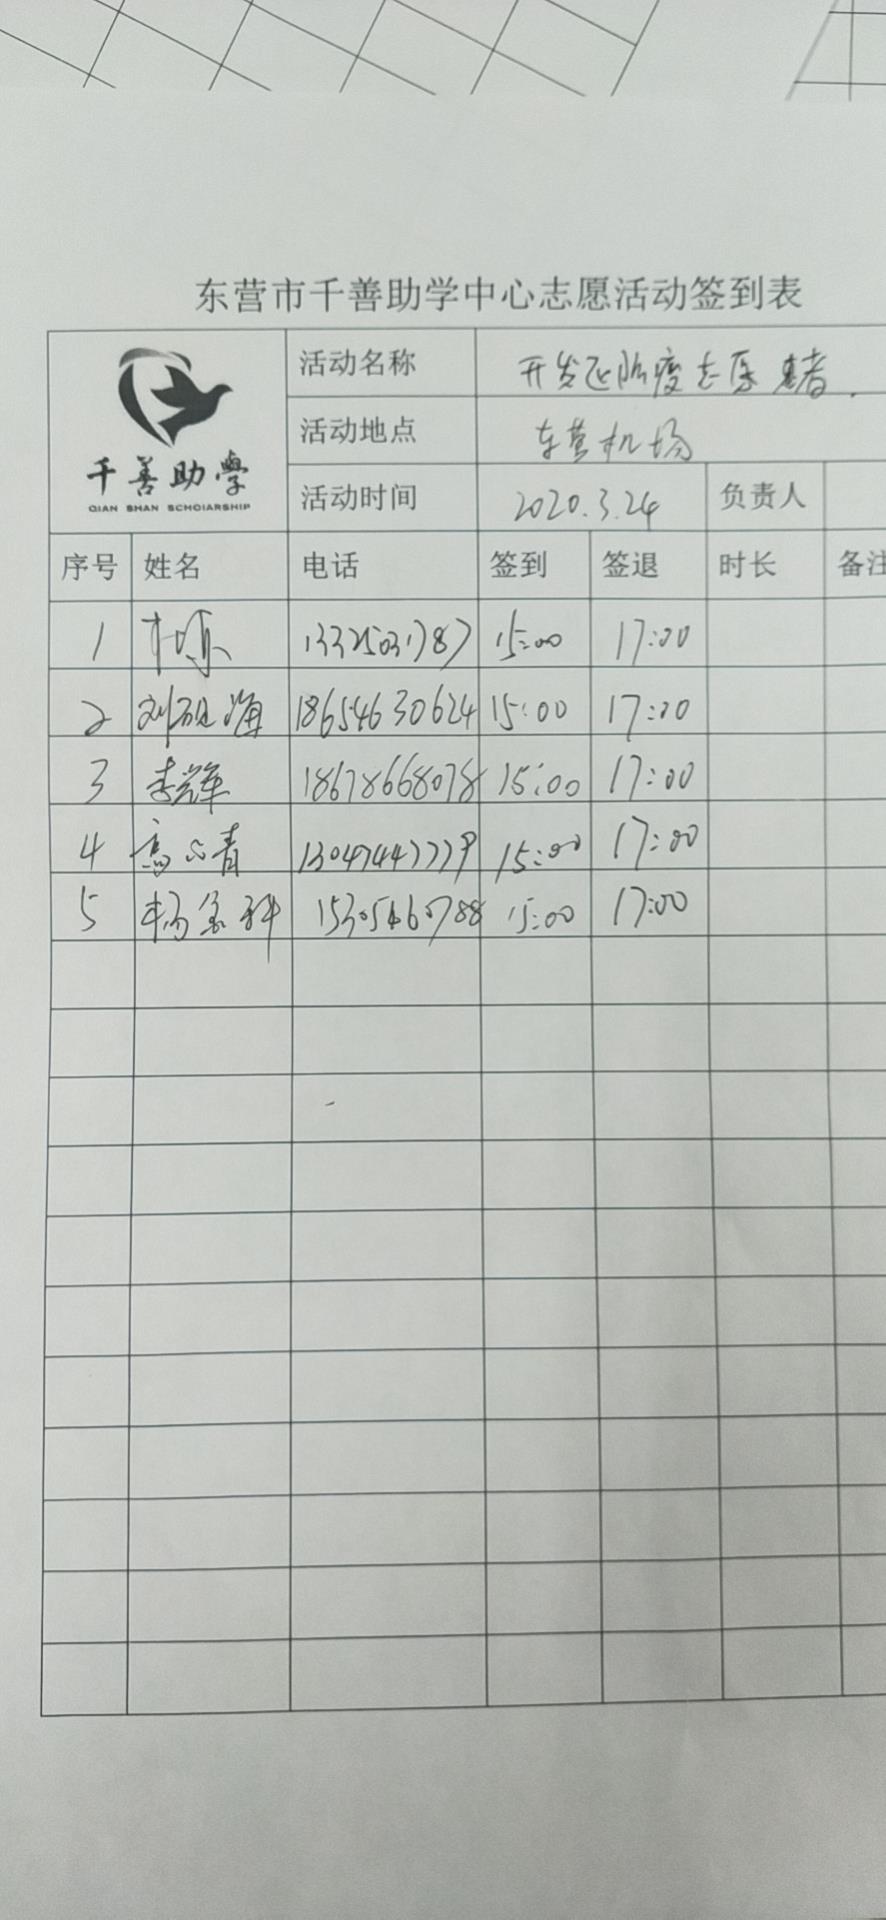 东营市千善助学中心志愿活动签到表
千善助學
QIAN SHAN SCHOIARSHIP
活动名称 开发区防疫志愿者
活动地点 东营机场
活动时间 2020.3.24 负责人
序号 姓名 电话 签到 签退 时长 备注
1 13325031787 15:00 17:00
2 刘砚海 18654630624 15:00 17:00
3 李辉 18678668078 15:00 17:00
4 高 青 13047447779 15:00 17:00
5 杨 科 15305460788 15:00 17:00